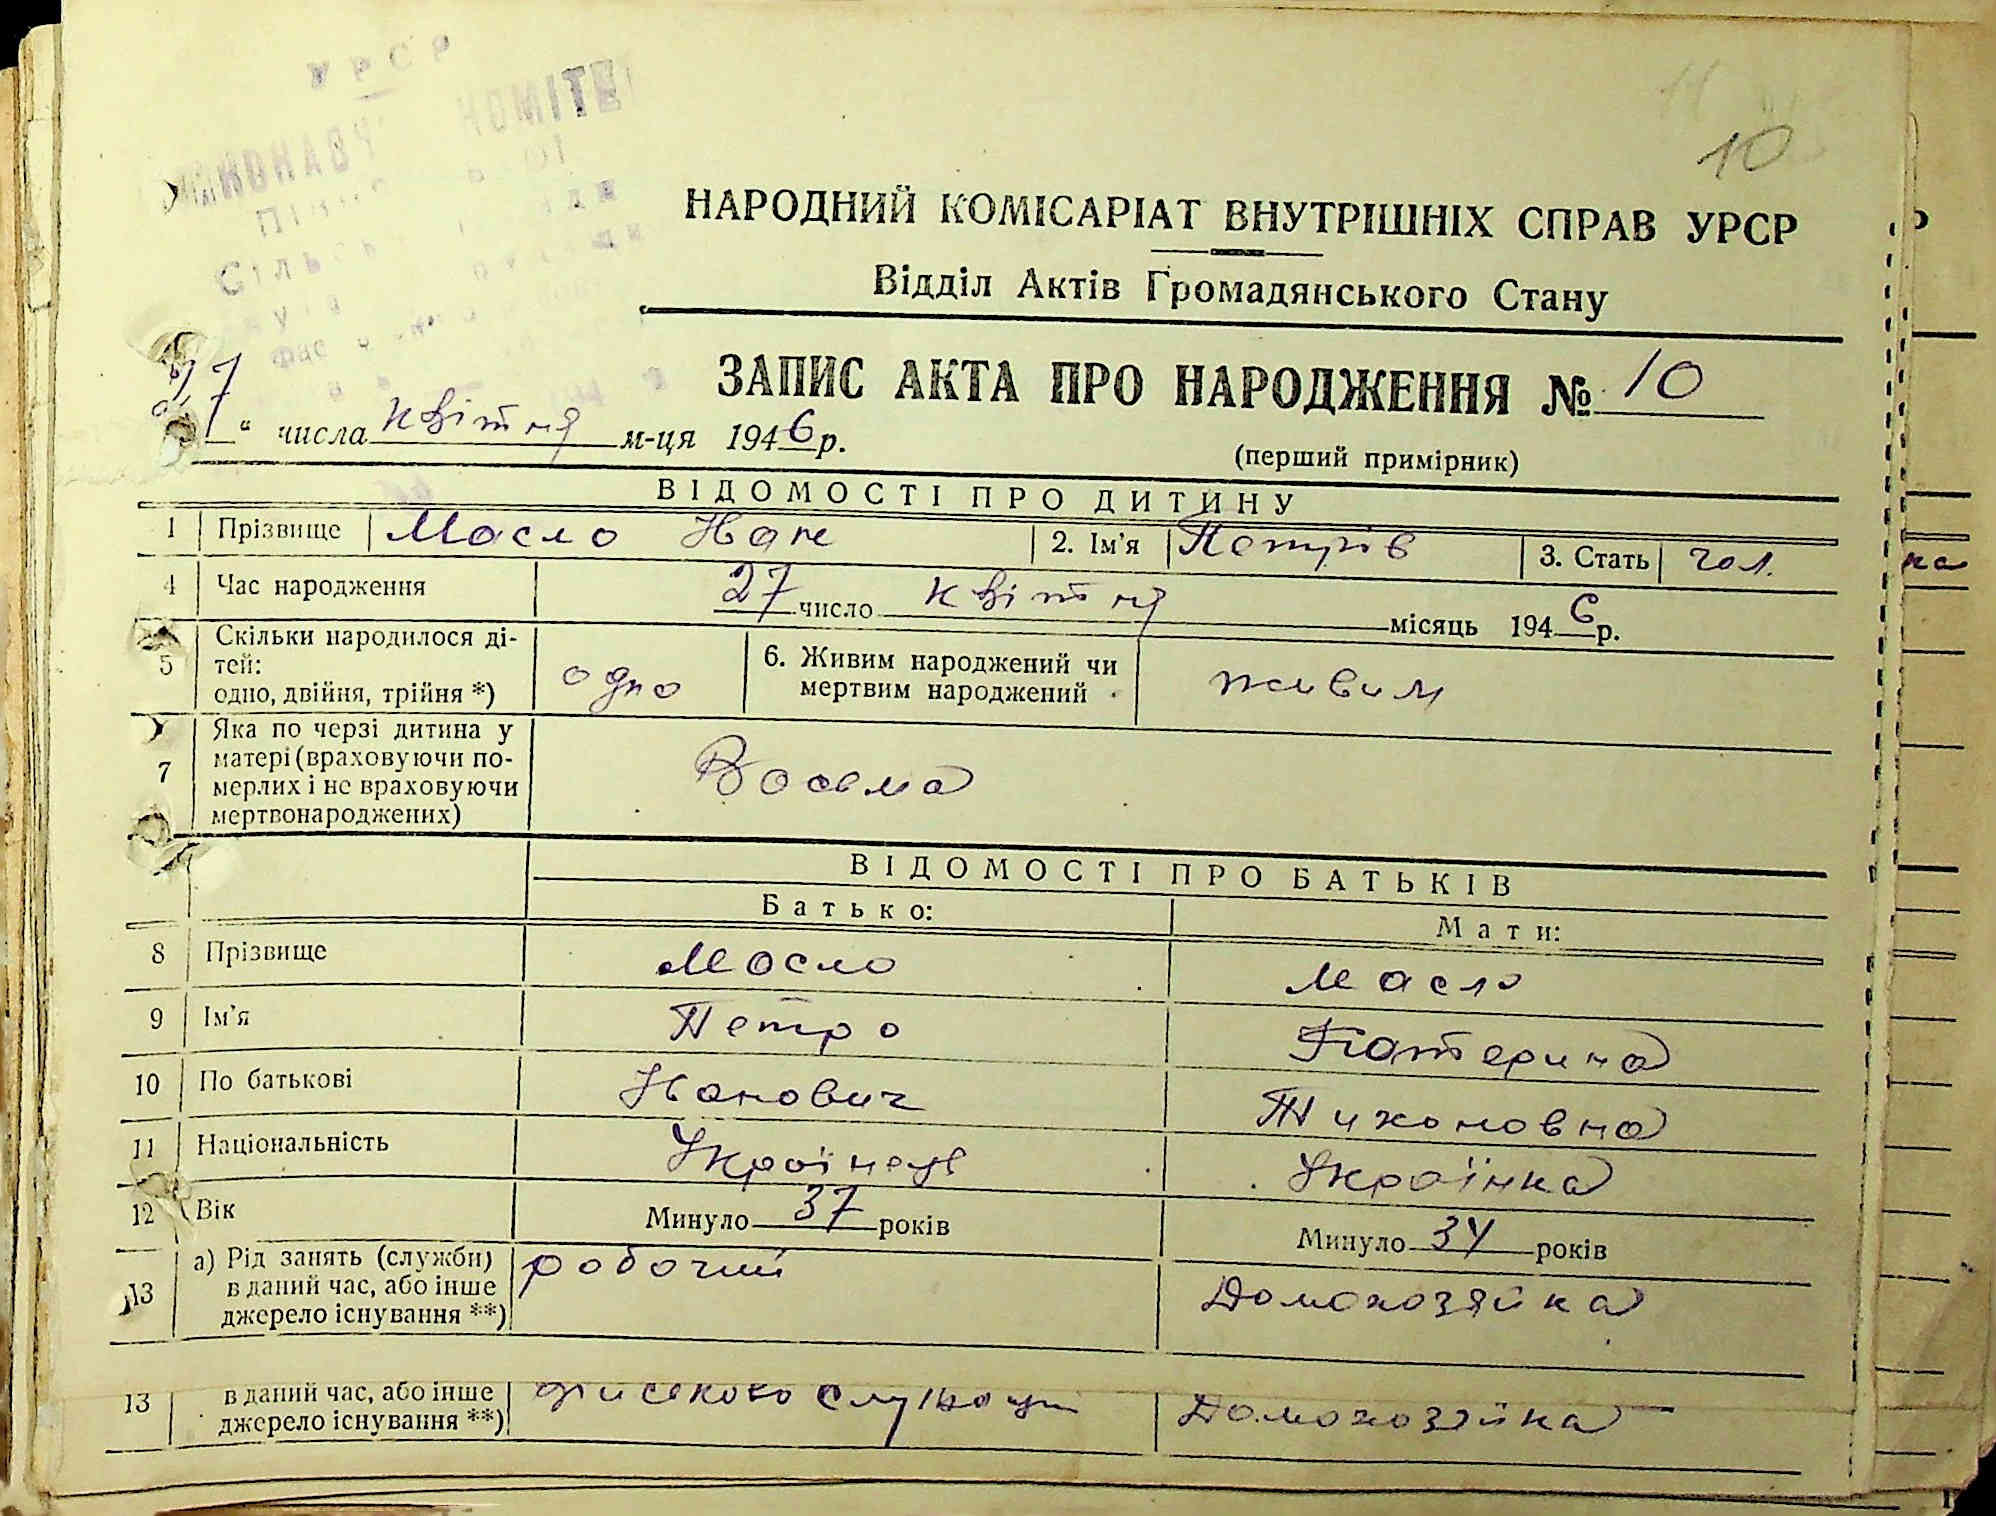 УРСР
КОМІТЕ
10
НАРОДНИЙ КОМІСАРІАТ ВНУТРІШНІХ СПРАВ УРСР
Відділ Актів Громадянського Стану
ЗАПИС АКТА ПРО НАРОДЖЕННЯ № 10
“ числа квітня м-ця 1946 р.
(перший примірник)
ВІДОМОСТІ ПРО ДИТИНУ
1 Прізвище Масло Іван 2. Ім'я Петрів 3. Стать чол.
4 Час народження 27 число квітня місяць 1946 р.
5 Скільки народилося ді-
тей:
одно, двійня, трійня *) одно 6. Живим народжений чи
мертвим народжений живим
7 Яка по черзі дитина у
матері (враховуючи по-
мерлих і не враховуючи
мертвонароджених) Восьма
ВІДОМОСТІ ПРО БАТЬКІВ
Батько: Мати:
8 Прізвище Масло Масло
9 Ім'я Петро Катерина
10 По батькові Іванович Тихоновна
11 Національність Українець Українка
12 Вік Минуло 37 років Минуло 34 років
13 а) Рід занять (служби)
в даний час, або інше
джерело існування **) робочий Домохозяйка
13 в даний час, або інше
джерело існування **) Домохозяйка